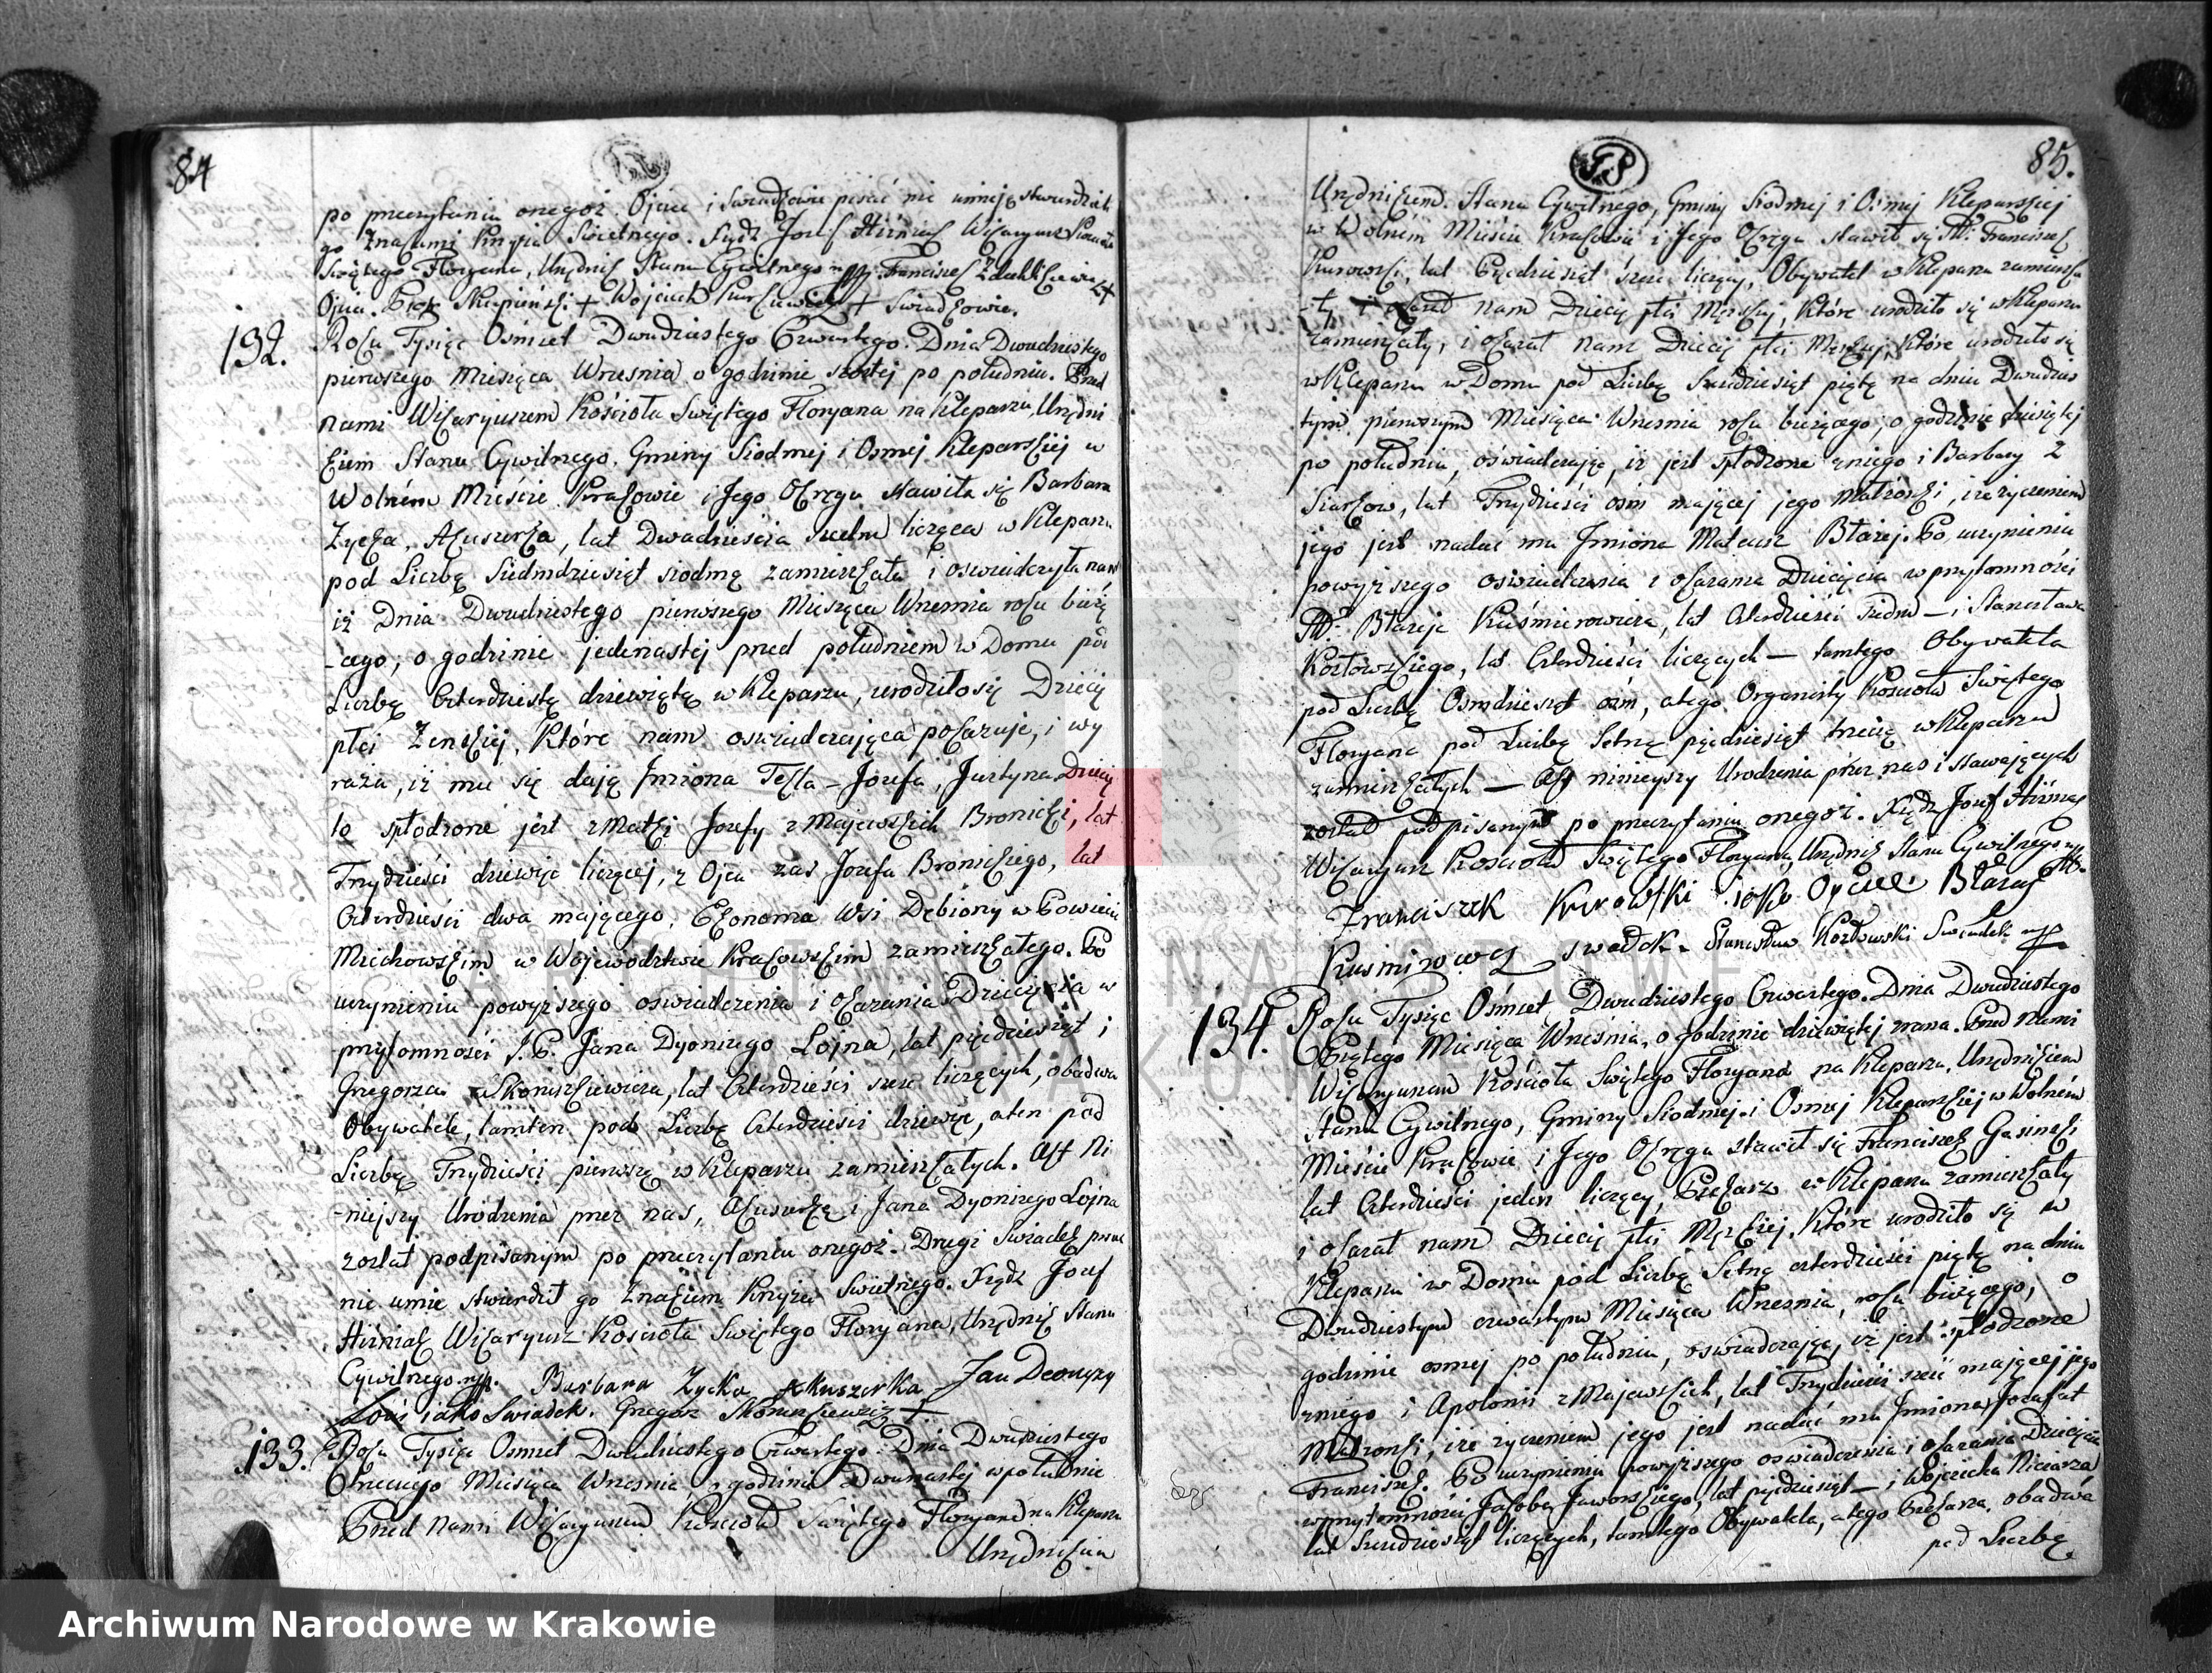 84
po przeczytaniu onegoż. Ojciec i Swiadkowie pisać nie umieją stwierdzili
go Znakami Krzyża Swietnego. Xiądz Jozef Hiźniak Wikaryusz Kościoła
Swiętego Floryana, Urzędnik Stanu Cywilnego mp. Franciszek +
Ojciec. Piotr Skupieński + Wojciech + Swiadkowie.
132.
Roku Tysiąc Ośmset Dwudziestego Czwartego. Dnia Dwudziestego
pierwszego Miesiąca Wrzesnia o godzinie szostej po południu. Przed
nami Wikaryuszem Kościoła Swiętego Floryana na Kleparzu, Urzędni
kiem Stanu Cywilnego, Gminy Siodmej i Osmej Kleparskiej w
Wolném Mieście Krakowie i Jego Okręgu stawiła się Barbara
Zycka, Akuszerka, lat Dwadzieścia siedm licząca w Kleparzu
pod Liczbą Siedmdziesiąt siodmą zamieszkała i oswiadczyła nam
iż Dnia Dwudziestego pierwszego Miesiąca Wrzesnia roku bieżą
-cego, o godzinie jedenastej przed południem w Domu pod
Liczbą Czterdziestą dziewiątą w Kleparzu, urodziło się Dziecię
płci Zenskiej, Które nam oswiadczająca pokazuje, i wy
raża, iż mu się dają Jmiona Tekla - Jozefa, Justyna Dziecię
to spłodzone jest z Matki Jozefy z Majewskich Bronicki, lat
Trzydzieści dziewięć liczącej, z Ojca zaś Jozefa Bronickiego, lat
Czterdzieści dwa mającego, Ekonoma Wsi Dębiony w Powiecie
Miechowskim w Wojewodztwie Krakowskim zamieszkałego. Po
uczynieniu powyższego oswiadczenia i okazania Dziecięcia w
przytomności J. P. Jana Dyonizego Łojna, lat pięćdziesiąt i
Grzegorza Skoruszkiewicza, lat Czterdzieści sześć liczących, obadwa
Obywatele, tamten pod Liczbą Czterdzieści dziewięć, a ten pod
Liczbą Trzydzieści pierwszą w Kleparzu zamieszkałych. Akt Ni
-niejszy Urodzenia przez nas, Akuszerkę i Jana Dyonizego Łojna
został podpisanym po przeczytaniu onegoż. Drugi Swiadek pisać
nie umie stwierdził go Znakiem Krzyża Swietnego. Xiądz Jozef
Hiźniak Wikaryusz Kościoła Swiętego Floryana, Urzędnik Stanu
Cywilnego mp. Barbara Zycka Akuszerka Jan Deonizy
jako Swiadek. Grzegorz Skoruszkiewicz +
133.
Roku Tysiąc Osmset Dwudziestego Czwartego. Dnia Dwudziestego
trzeciego Miesiąca Wrzesnia o godzinie Dwunastej w południe
Przed Nami Wikaryuszem Kościoła Swiętego Floryana na Kleparzu
Urzędnikiem
85.
Urzędnikiem Stanu Cywilnego, Gminy Siodmej i Osmej Kleparskiej
w Wolném Mieście Krakowie i Jego Okręgu stawił się W. Franciszek
Kurowski, lat Pięćdziesiąt sześć liczący, Obywatel w Kleparzu zamieszka
-ły, i okazał nam Dziecię płci Męskiej, Które urodziło się w Kleparzu
zamieszkały, i okazał nam Dziecię płci Męskiej, Które urodziło się
w Kleparzu w Domu pod Liczbą Sześdziesiąt piątą na dniu Dwudzies
tym pierwszym Miesiąca Wrzesnia roku bieżącego, o godzinie dziesiątej
po południu, oświadczając, iż jest spłodzone z niego i Barbary z
Siarkow, lat Trzydzieści ośm mającej jego Małżonki, i że życzeniem
jego jest nadać mu Jmiona Mateusz Błażej. Po uczynieniu
powyższego oswiadczenia i okazania Dziecięcia w przytomności
W. Błażeja Kuśmierowicza, lat Czterdzieści siedm — i Stanisława
Kozłowskiego, lat Czterdzieści liczących — tamtego Obywatela
pod Liczbą Osmdziesiąt ośm, a tego Organisty Kościoła Swiętego
Floryana pod Liczbą Setną pięćdziesiąt trzecią w Kleparzu
zamieszkałych — Akt niniejszy Urodzenia przez nas i stawających
został podpisanym po przeczytaniu onegoż. Xiądz Jozef Hiźniak
Wikaryusz Kościoła Swiętego Floryana, Urzędnik Stanu Cywilnego mp.
Franciszek Kurowski jako Oyciec Błażej
swadek. Stanisław Kozłowski Swiadek mp
134.
Roku Tysiąc Ośmset Dwudziestego Czwartego. Dnia Dwudziestego
Piątego Miesiąca Wrzesnia, o godzinie dziewiątej zrana. Przed Nami
Wikaryuszem Kościoła Swiętego Floryana na Kleparzu, Urzędnikiem
Stanu Cywilnego, Gminy Siodmej i Osmej Kleparskiej w Wolném
Mieście Krakowie i Jego Okręgu stawił się Franciszek Gasinski
lat Czterdzieści jeden liczący, Piekarz w Kleparzu zamieszkały
i okazał nam Dziecię płci Męskiej, Które urodziło się w
Kleparzu w Domu pod Liczbą Setną czterdzieści piątą na dniu
Dwudziestym czwartym Miesiąca Wrzesnia, roku bieżącego, o
godzinie osmej po południu, oswiadczając, iż jest spłodzone
z niego i Apolonii z Majewskich, lat Trzydzieści sześć mającej jego
Małżonki, i że życzeniem jego jest nadać mu Jmiona Jozafat
Franciszek. Po uczynieniu powyższego oswiadczenia i okazania Dziecięcia
w przytomności Jakoba Jaworskiego, lat pięćdziesiąt — i Wojciecha
lat Sześdziesiąt liczących, tamtego Obywatela, a tego Piekarza, obadwa
pod Liczbą
ARCHIWUM NARODOWE
W KRAKOWIE
Archiwum Narodowe w Krakowie